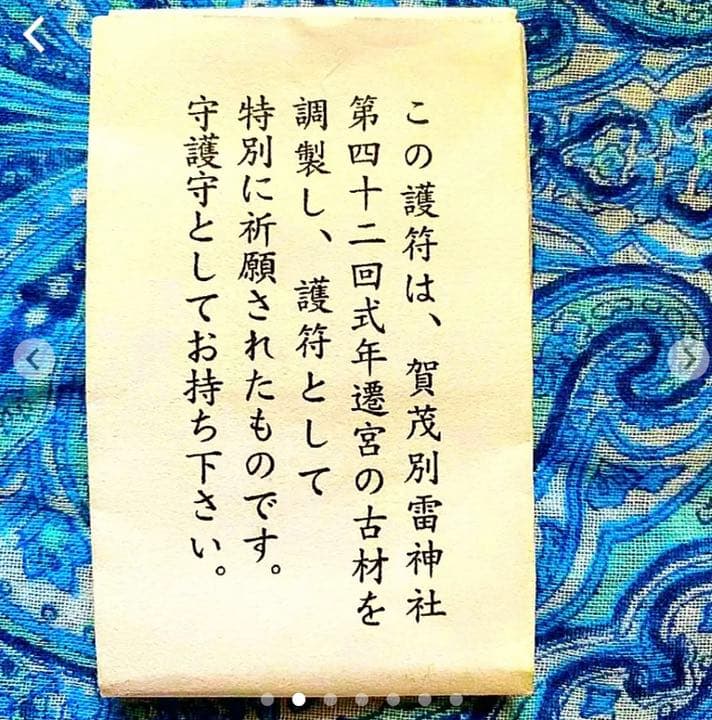 この護符は、賀茂別雷神社
第四十二回式年遷宮の古材を
調製し、護符として
特別に祈願されたものです。
守護守としてお持ち下さい。